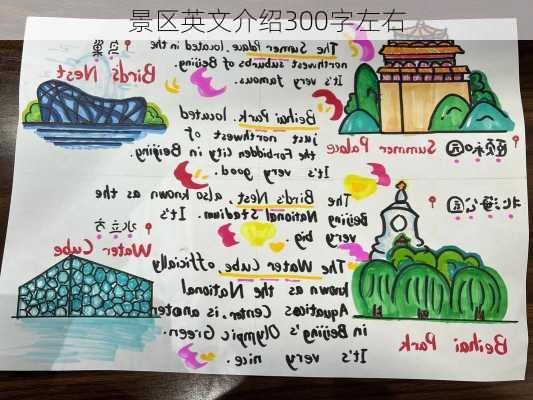 景区英文介绍300字左右
鸟巢
Bird's Nest
The Summer Palace. located in the
northwest suburbs of Beijing.
It's very famous.
颐和园
Summer Palace
Beihai Park. located
just northwest of
the Forbidden City in Beijing.
It's very good.
The Bird's Nest. also known as the
Beijing National Stadium. It's
very big.
北海公园
Beihai Park
水立方
Water Cube
The Water Cube officially
known as the National
Aquatics Center, is
in Beijing's Olympic Green.
It's very nice.